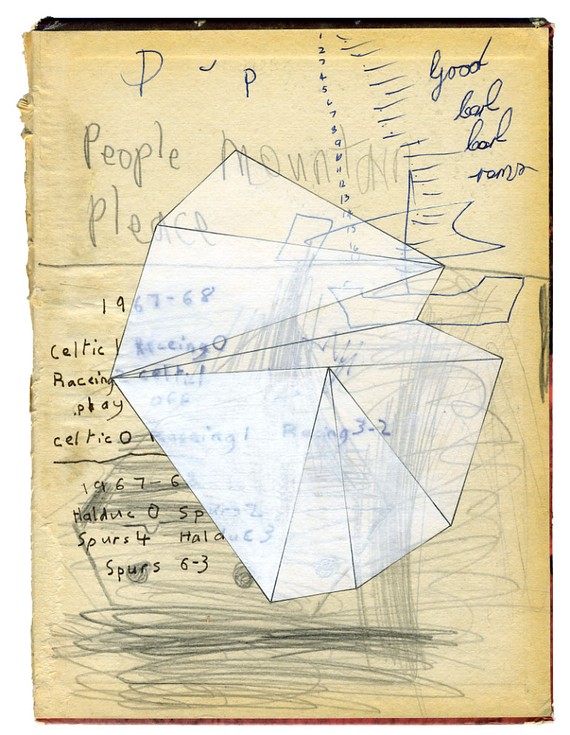 D p
1
2
3
4
5
6
7
8
9
10
11
12
13
14
15
16
Good
People Mountain
Pleace
1967-68
Celtic 1 Raceing 0
Raceing 2 Celtic 1
play off
celtic 0 Raceing 1 Racing 3-2
1967-6
Halduc 0 Spurs 2
Spurs 4 Halduc 3
Spurs 6-3